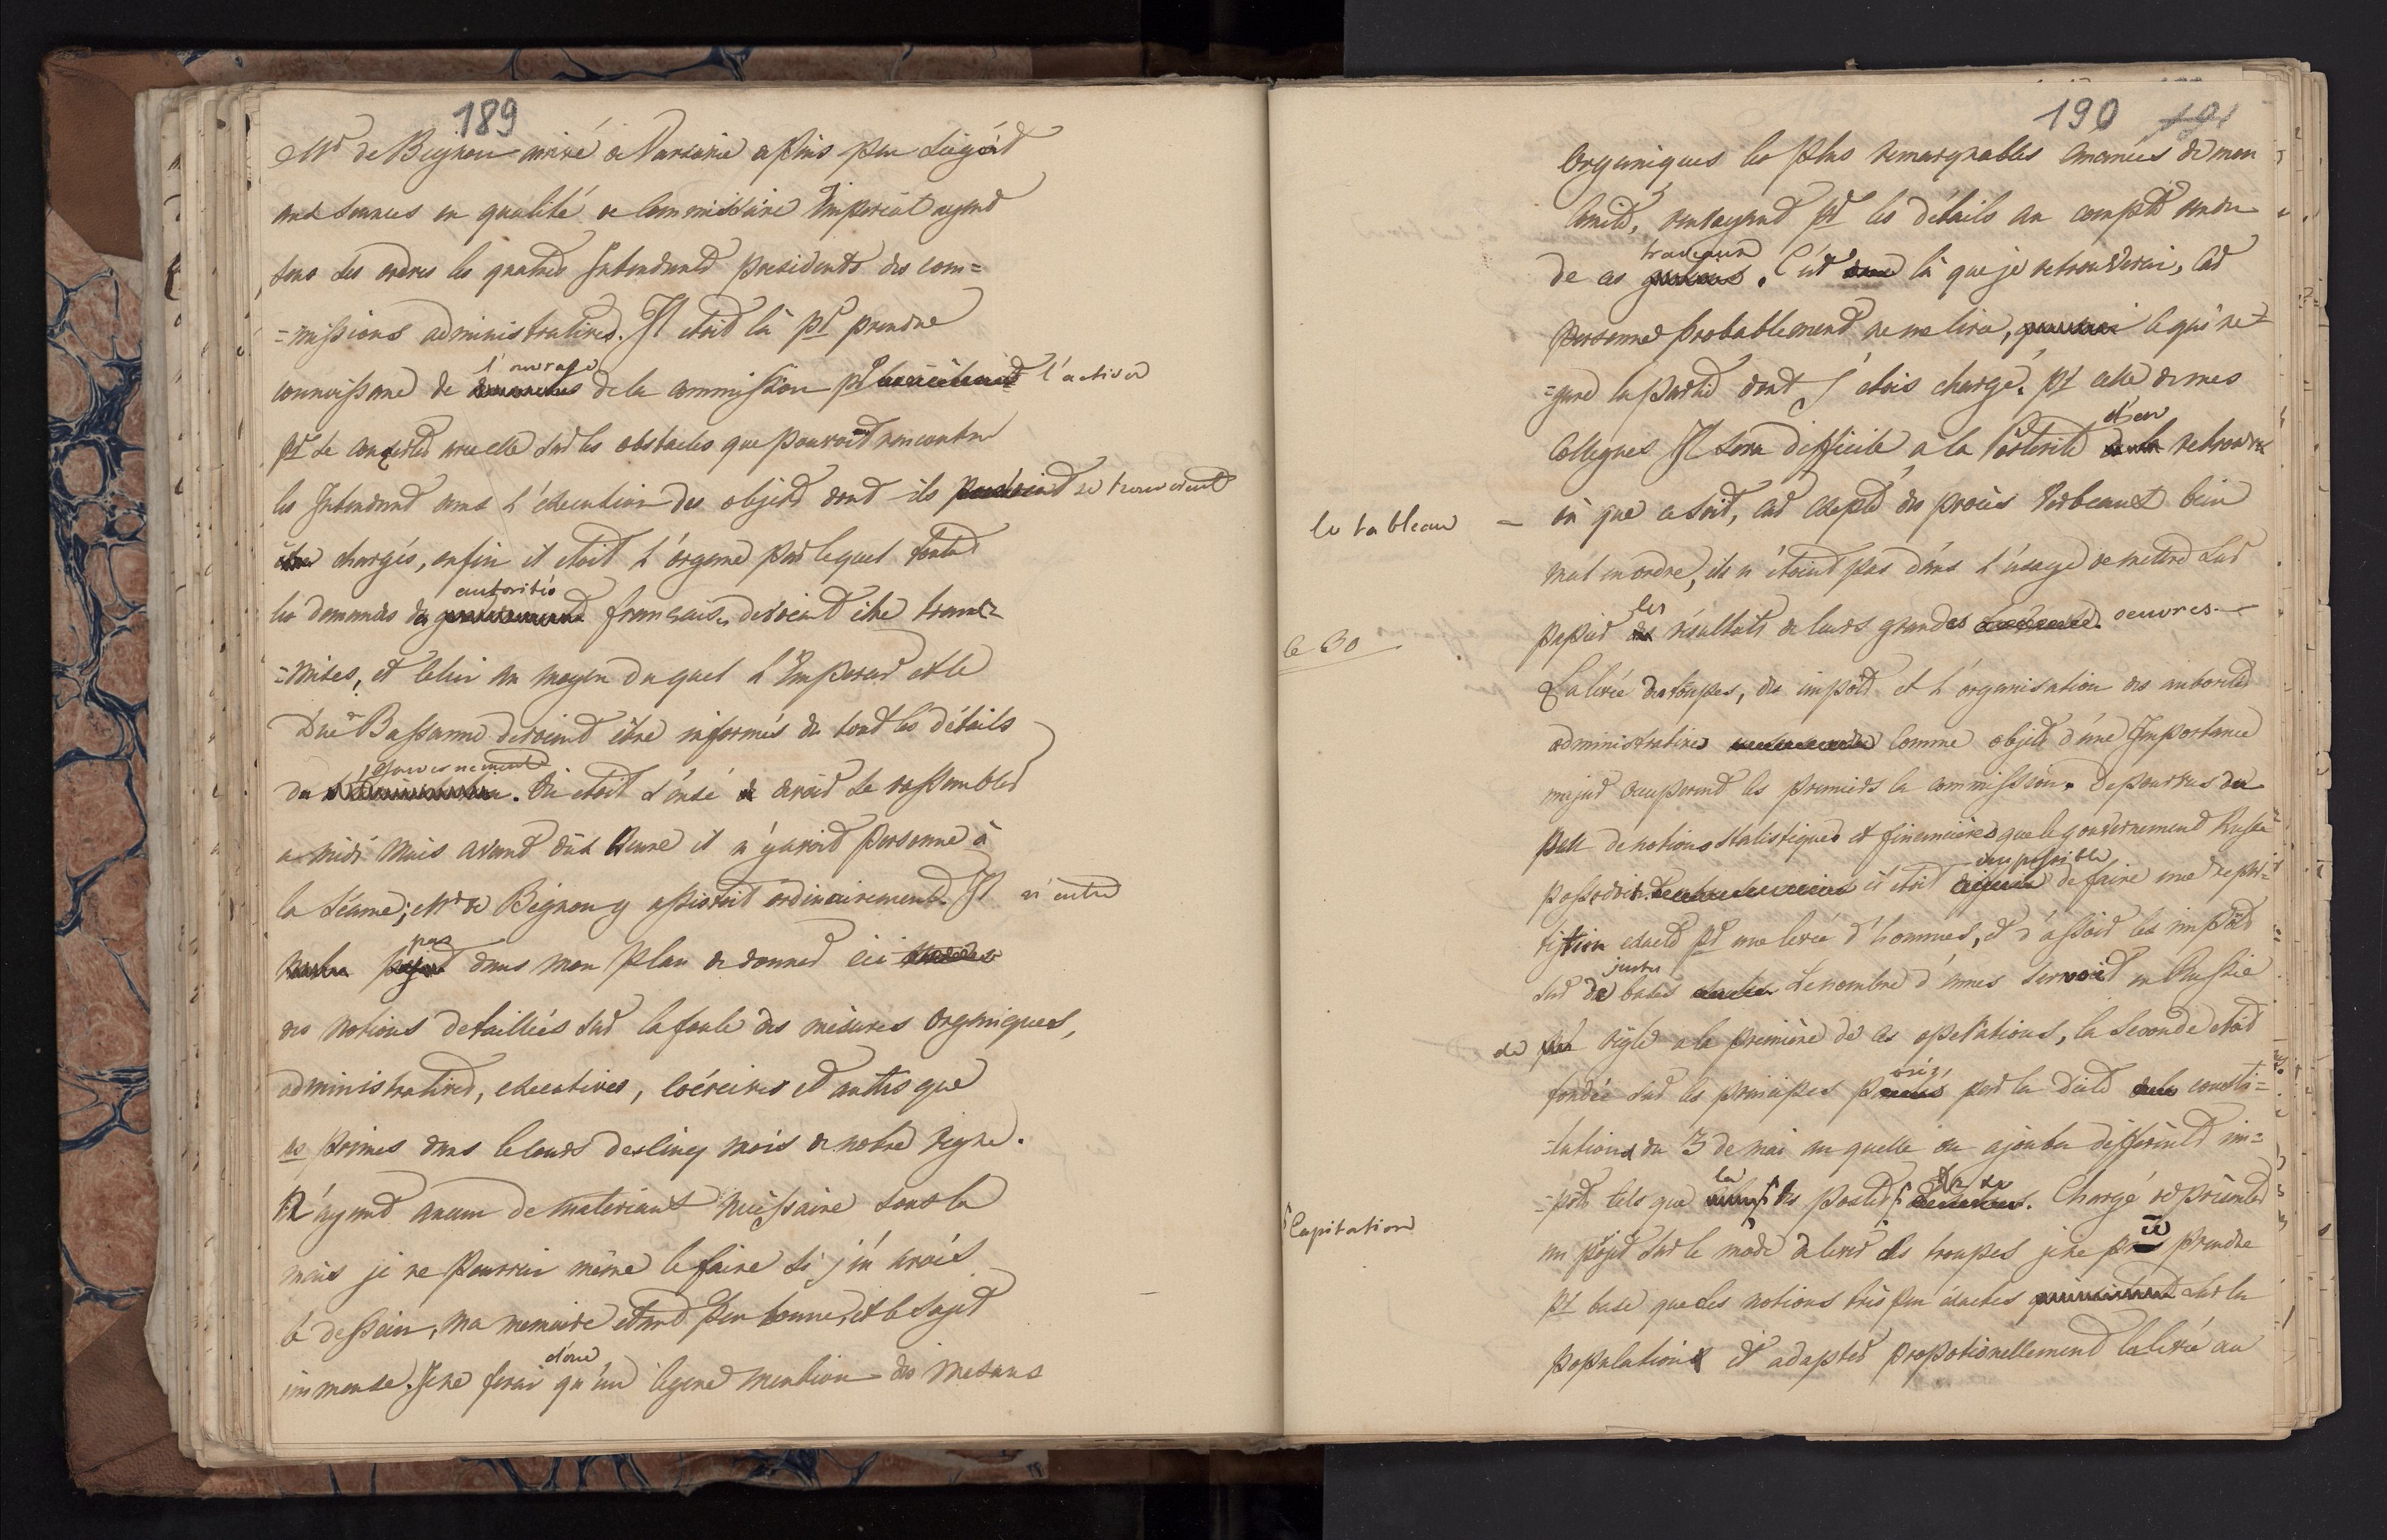 189
Mr de Bignon arrivé de Varsovie a pris peu siégoit
aux séances en qualité de Commissaire Imperial ayant
sous ses ordres les quatres Intendants presidents des com=
=missions administratives. Il etoit là pr prendre
connoissance de l'ouvrage de la commission pr l'activer
pr se concerter avec elle sur les obstacles que pouvoit rencontrer
les Intendant dans l'éxecution des objets dont ils se trouvoient
chargés, enfin il etoit l'organe par lequel toutes
les demandes des autorités francaises devoient être trans=
=mises, et celui au moyen duquel l'Empereur et le
Duc Bassanno devoient être informés de tout les détails
du gouvernement. On etoit censé devoir se rassembler
a midi mais avant une heure il n'y avoit personne à
la séance; Mr de Bignon y assistoit ordinairement. Il n'entre
pas dans mon plan de donner ici
des notions detaillées sur la foule des mésures organiques,
administratives, executives, coércives et autres que
ns primes dans le cours des cinq mois de notre regne.
N'ayant aucun de materiaux nécessaire sous la
main je ne pourrai même le faire si j'en avois
le dessein, ma memoire etant peu bonne, et le sujet
immense. Je ne ferai donc qu'une légere mention des mesures
190 191
Organiques les plus remarquables emanées de mon
Comité, renvoyant pr les détails au compte rendu
de ces travaux. C'est là que je retrouverai, car
personne probablement ne me lira, ce qui re=
=garde la partie dont j'étois chargé. pr celle de mes
Collegues Il sera difficile a la Postérité d'en retrouver
le tableau – où que ce soit, car excepté des procès verbeaux bien
mal en ordre, ils n'étoient pas dans l'usage de mettre sur
papier les résultats de leurs grandes oeuvres –
le 30
La levée des troupes, des impôts et l'organisation des autorités
administratives comme objets d'une Importance
majeur occuperent les premiers la commission. Depourvus du
peu de notions statistiques et financieres que le gouvernement Russe
possedoit il etoit impossible de faire une repar=
tition exacte pr une levée d'hommes, et d'assoir les impôts
sur de bases justes Le nombre d'âmes servoit en Russie
de règle a la première de ces opérations, la seconde etoit
fondée sur les principes par la diète constit=
=tutions du 3 de mai au quelle on ajouta différents im=
=pôts tels que la Capitation des postes. Chargé de présenter
un projet sur le mode de lever des troupes je ne pus prendre
pr base que des notions très peu exactes sur la
population et adapter propotionellement la levée au